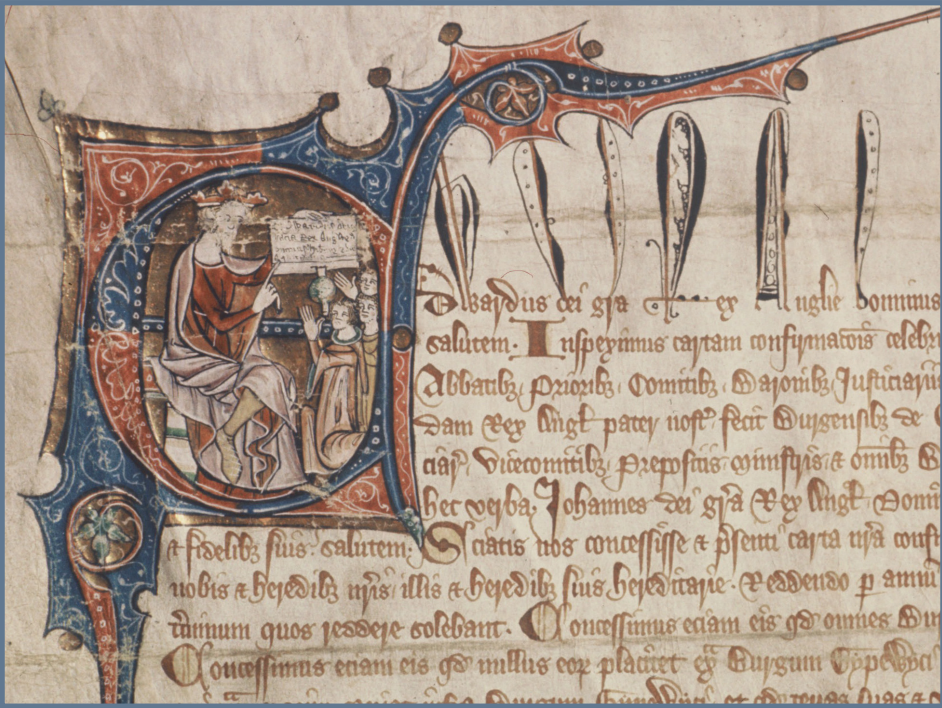 Edwardus dei gra Rex Anglie Dominus
salutem. Inspeximus cartam confirmatois celebr
Abbatibȝ Prioribȝ Comitibȝ Baronibȝ Justiciarii
dam Rex Angl pater nostr fecit Burgensibȝ de
ciar Vicecomitibȝ Prepositis ministris ⁊ omibȝ B
hec verba. Johannes dei gra Rex Angl Domi
⁊ fidelibȝ suis salutem. Sciatis nos concessisse ⁊ psenti carta nra conf
nobis ⁊ heredibȝ nris illis ⁊ heredibȝ suis hereditarie. Reddendo p annu
tminum quos reddere solebant. Concessimus eciam eis qd omnes Bur
Concessimus eciam eis qd nullus eor placitet ex Burgum Gypewyci